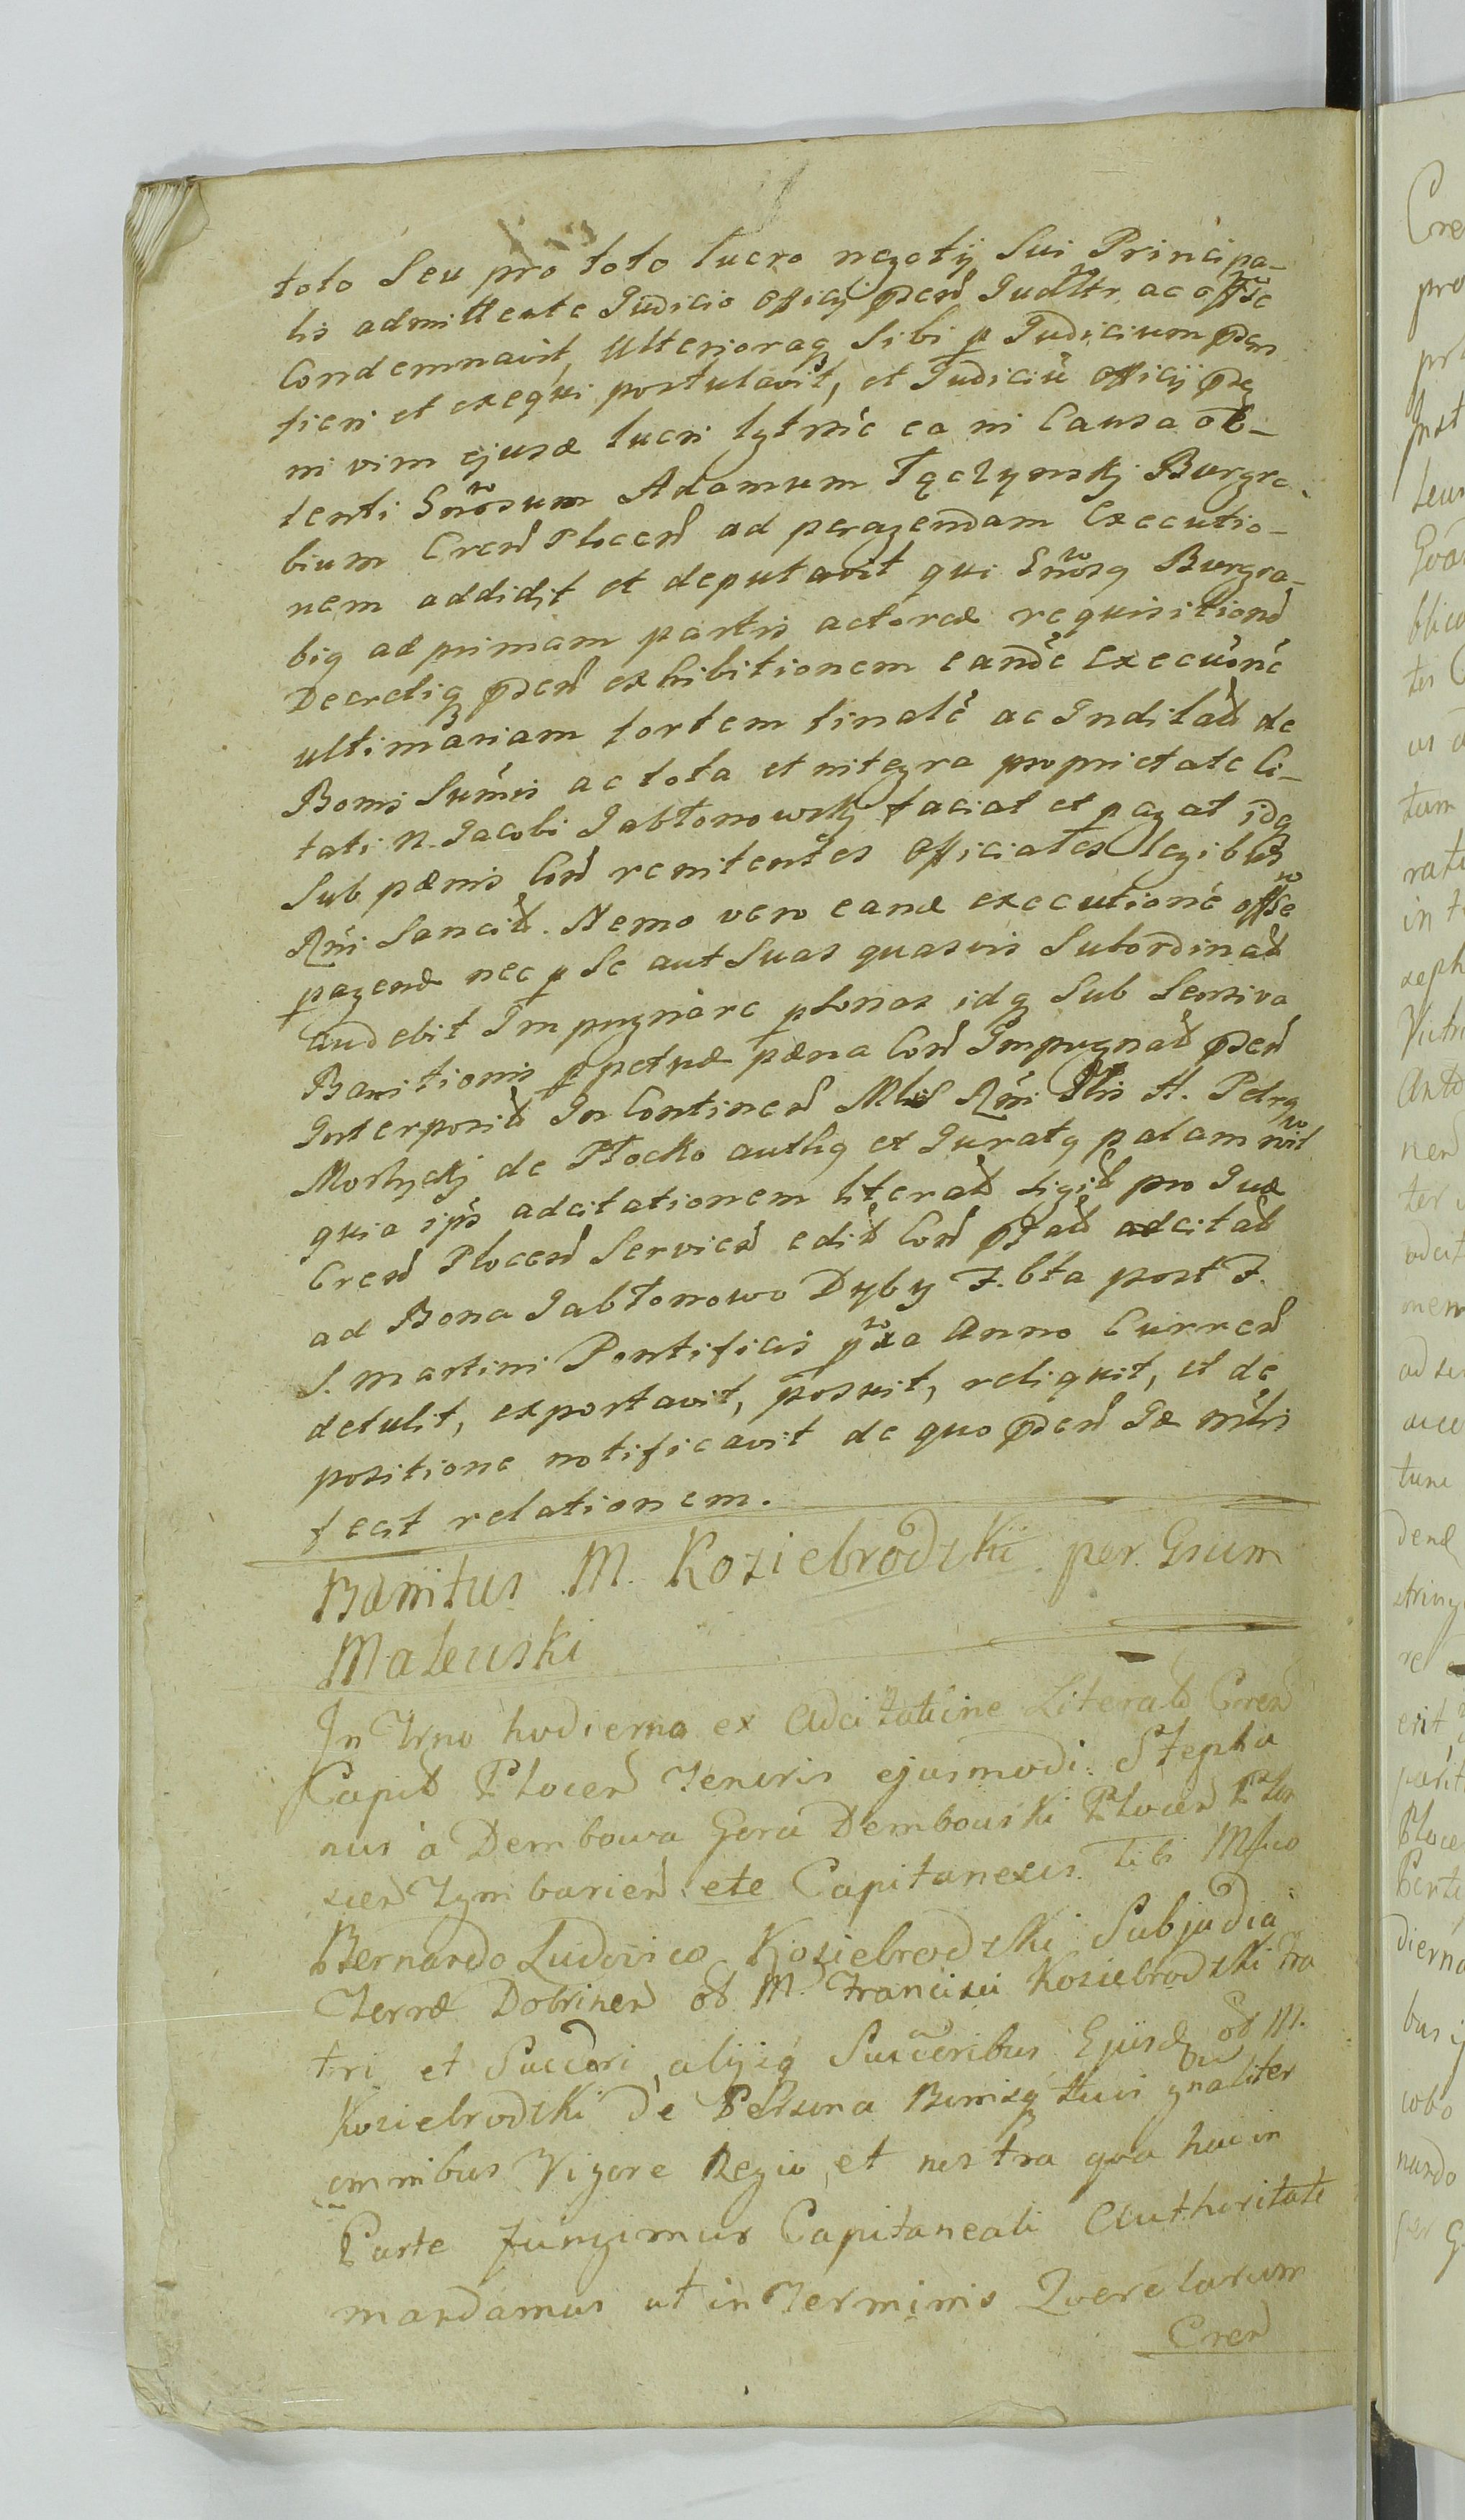 toto Seu pro toto lucro negotij Sui Principa-
lis admittente Judicio officij pden Judltr ac offse
Condemnavit, Ulterioraq Sibi p Judicium pdens
fieri et exequi postulavit, et Judiciũ officij pdeq
in vim ejusd lucri lgtmĩe ea in Causa ob-
tenti Gnosum Adamum Tęczynskj Burgra-
bium Cren Plocen ad peragendam Executio-
nem addidit et deputavit qui Gnosq Burgra-
big ad primam partis actoreæ requisitionẽ
Decretiq pden exhibitionem eandẽ Execuõnẽ
ultimariam fortem finalẽ ac Inditat de
Bonis Sum̃is ac tota et integra proprietate Ci-
tati N. Jacobi Jabłonowskj faciat et pagat idq
Sub pænis Con renitentes Officiales legibus
Rñi Sancit. Nemo vero eand executionẽ offse
pagend nec p Se aut Suas quasvis Subordinat
audebit Impugnare psonas idq Sub Sensiva
Banitionis ppetuæ pæna Con Impugnat pden
Interposit In Continen Mlis Rñi Plis A. Petrq
Mostyckj de Płocko authq et Juratq palam
quia ips adcitationem literat ligit pro Jud
Cren Plocen Servien edit Con pfat adcitat
ad Bona Jabłonowo Dyby F. bta post F.
S. Martini Pontificis pxa Anno Curren
detulit, exportavit, posuit, reliquit, et de
positione notificavit de quo pden Id mĩlis
fecit relationem.
Banitus M. Koziebrodzkii per Gsum
Malewski
In Trno hodierno ex Adcitatione Literat Cren
Capit Plocen Tenoris ejusmodi. Stepha
nus à Dembowa Gora Dembowski Plocen Plon
scen Tymbarien etc Capitaneus. Tibi Mfico
Bernardo Ludovico Koziebrodzki Subjudici
Terræ Dobrinen ol M. Francisci Koziebrodzki Fra
tri et Succori, alijsq Succoribus Ejusd ol M.
Koziebrodzki De Persona Bonisq tuis gnaliter
omnibus Vigore Regia, et nostra qua hac in
Parte fungimur Capitaneali Authoritate
mandamus ut in Terminis Querelarum
Cren